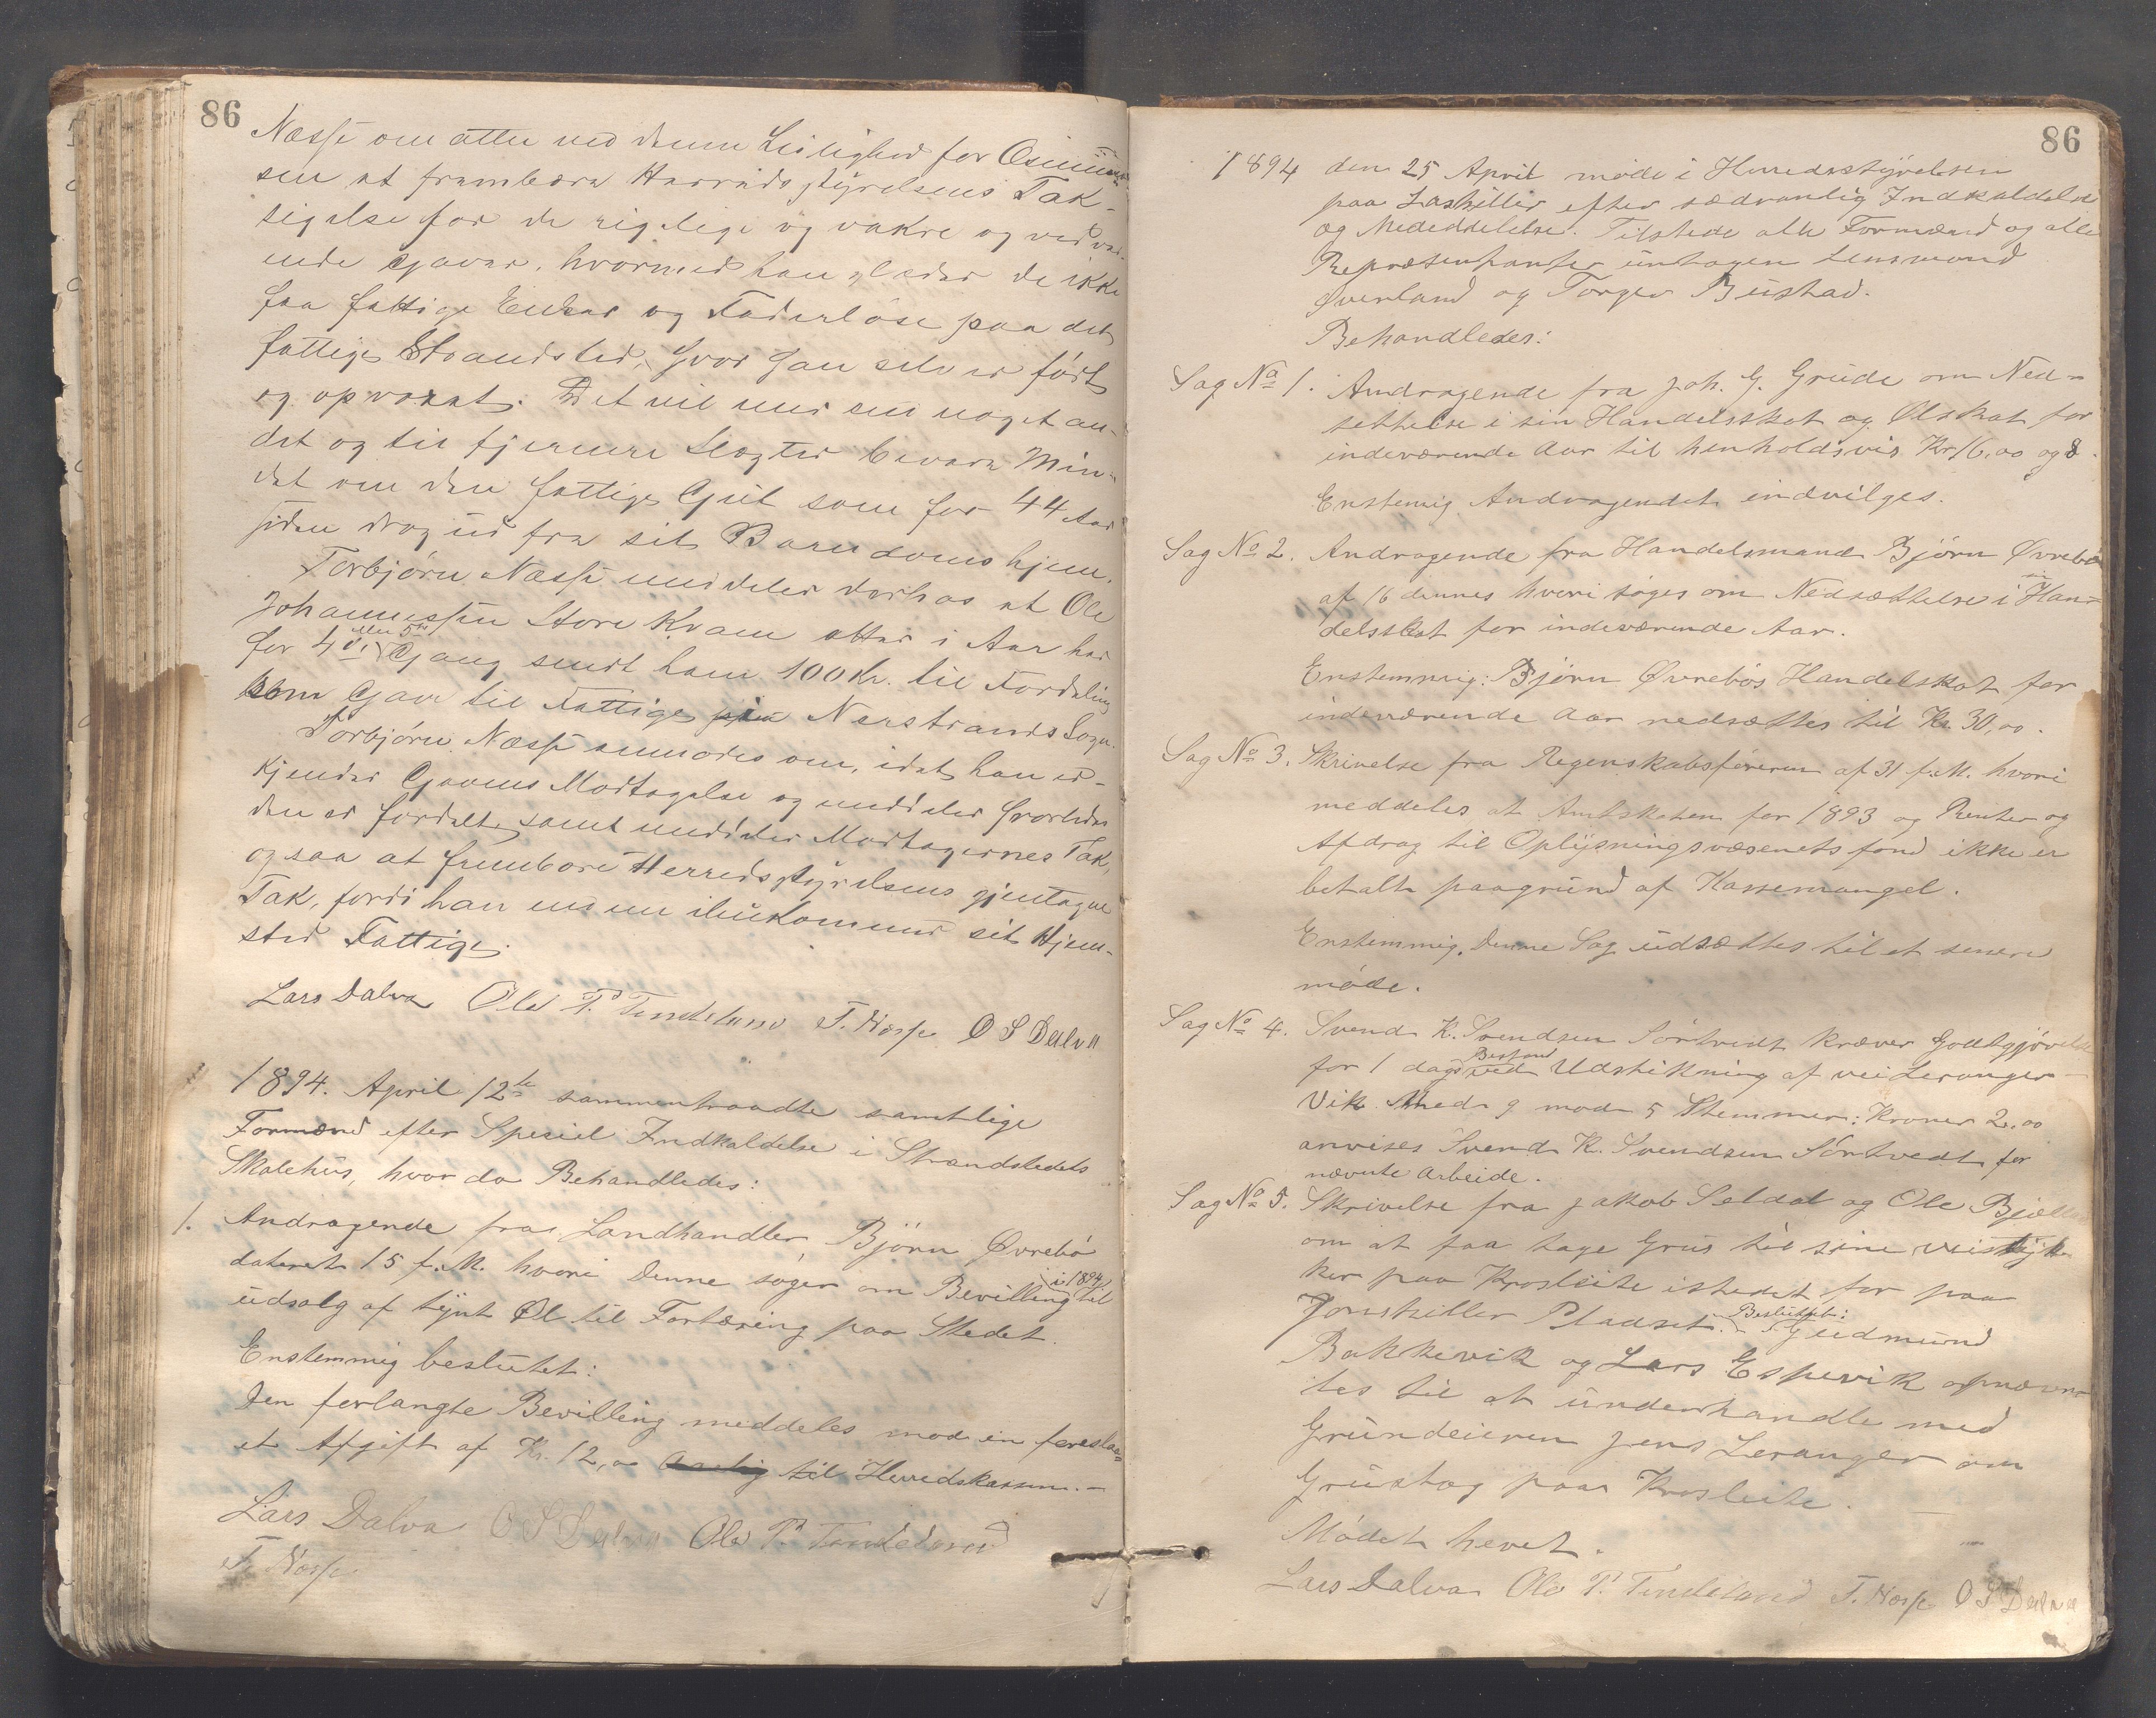 86
Næsse om atter ved denne Leilighed for Osmund-
sen at frambære Herredsstyrelsens Tak-
sigelse for de rigelige og vakre og vedvar-
ende Gaver, hvormed han glæder de ikke
faa fattige Enker og Faderløse paa det
fattige Strandsted, hvor han selv er født
og opvoxet. Det vil mer end noget an-
det og til fjernere Slægter bevare Min-
det om den fattige Gut som for 44 Aar
siden drog ud fra sit Barndomshjem.
Torbjørn Næsse meddeler derhos at Ole
Johannessen Store Kvam atter i Aar har
for 4de eller 5te Gang sendt ham 100 Kr. til Fordeling
som Gave til Fattige i Nerstrands Sogn.
Torbjørn Næsse anmodes om, idet han er-
kjender Gavens Modtagelse og meddeler hvorledes
den er fordelt, samt meddeler Modtagernes Tak,
ogsaa at frembære Herredsstyrelsens gjentagne
Tak, fordi han ihukommer sit Hjem-
sted Fattige.
Lars Dalva Ole T. Tendeland T. Næsse O S Dalva
1894. April 12te sammentraadte samtlige
Formænd efter Speciel Indkaldelse i Strandstedets
Skolehus, hvor da Behandledes:
1. Andragende fra Landhandler Bjørn Øvrebø
dateret 15 f. M. hvori Denne søger om Bevilling i 1894 til
udsalg af tyndt Øl til Fortæring paa Stedet.
Enstemmig beslutet:
Den forlangte Bevilling meddeles mod en foreslaa-
et Afgift af Kr. 12,00 Aarlig til Herredskassen.-
Lars Dalva O S Dalva Ole T. Tendeland
T. Næsse
86
1894 den 25 April møde i Herredsstyrelsen
paa Laskiller efter sædvanlig Indkaldelse
og Mededelelse. Tilstede alle Formænd og alle
Repræsentanter undtagen Lensmand
Øverland og Torger Bustad.
Behandledes:
Sag No 1. Andragende fra Joh. G. Grude om Ned-
settelse i sin Handelsskat og Ølskat for
indeværende Aar til henholdsvis Kr 16,00 og 8.
Enstemig Andragendet indvilges.
Sag No 2. Andragende fra Handelsmand Bjørn Øvrebø
af 16 dennes hvori søges om Nedsættelse i sin Han-
delsskat for indeværende Aar.
Enstemmig: Bjørn Øvrebøs Handelskat for
indeværende Aar nedsættes til Kr. 30,00.
Sag No 3. Skrivelse fra Regenskabsføreren af 31 f. M. hvori
meddeles at Amtskaten for 1893 og Renter og
Afdrag til Oplysningsvæsenets fond ikke er
betalt paagrund af Kassemangel.
Enstemmig. Denne Sag udsættes til et senere
møde.
Sag No 4. Svend K. Svendsen Sørtvedt kræver Godtgjørelse
for 1 dags Bestand ved Udstikning af vei Leranger-
Vik. Med 9 mod 5 Stemmer: Kroner 2,00
anvises Svend K. Svendsen Sørtvedt for
nævnte Arbeide.
Sag No 5. Skrivelse fra Jakob Seldal og Ole Bjelland
om at faa tage Grus til sine veistyk-
ker paa Krosleite istedet for paa
Jonskiller Pladset. Beslutet: Gudmund
Bakkevik og Lars Espevik opnævn-
tes til at underhandle med
Grundeieren Jens Leranger om
Grustag paa Krosleite.
Mødet hevet.
Lars Dalva Ole T. Tendeland T. Næsse O S Dalva